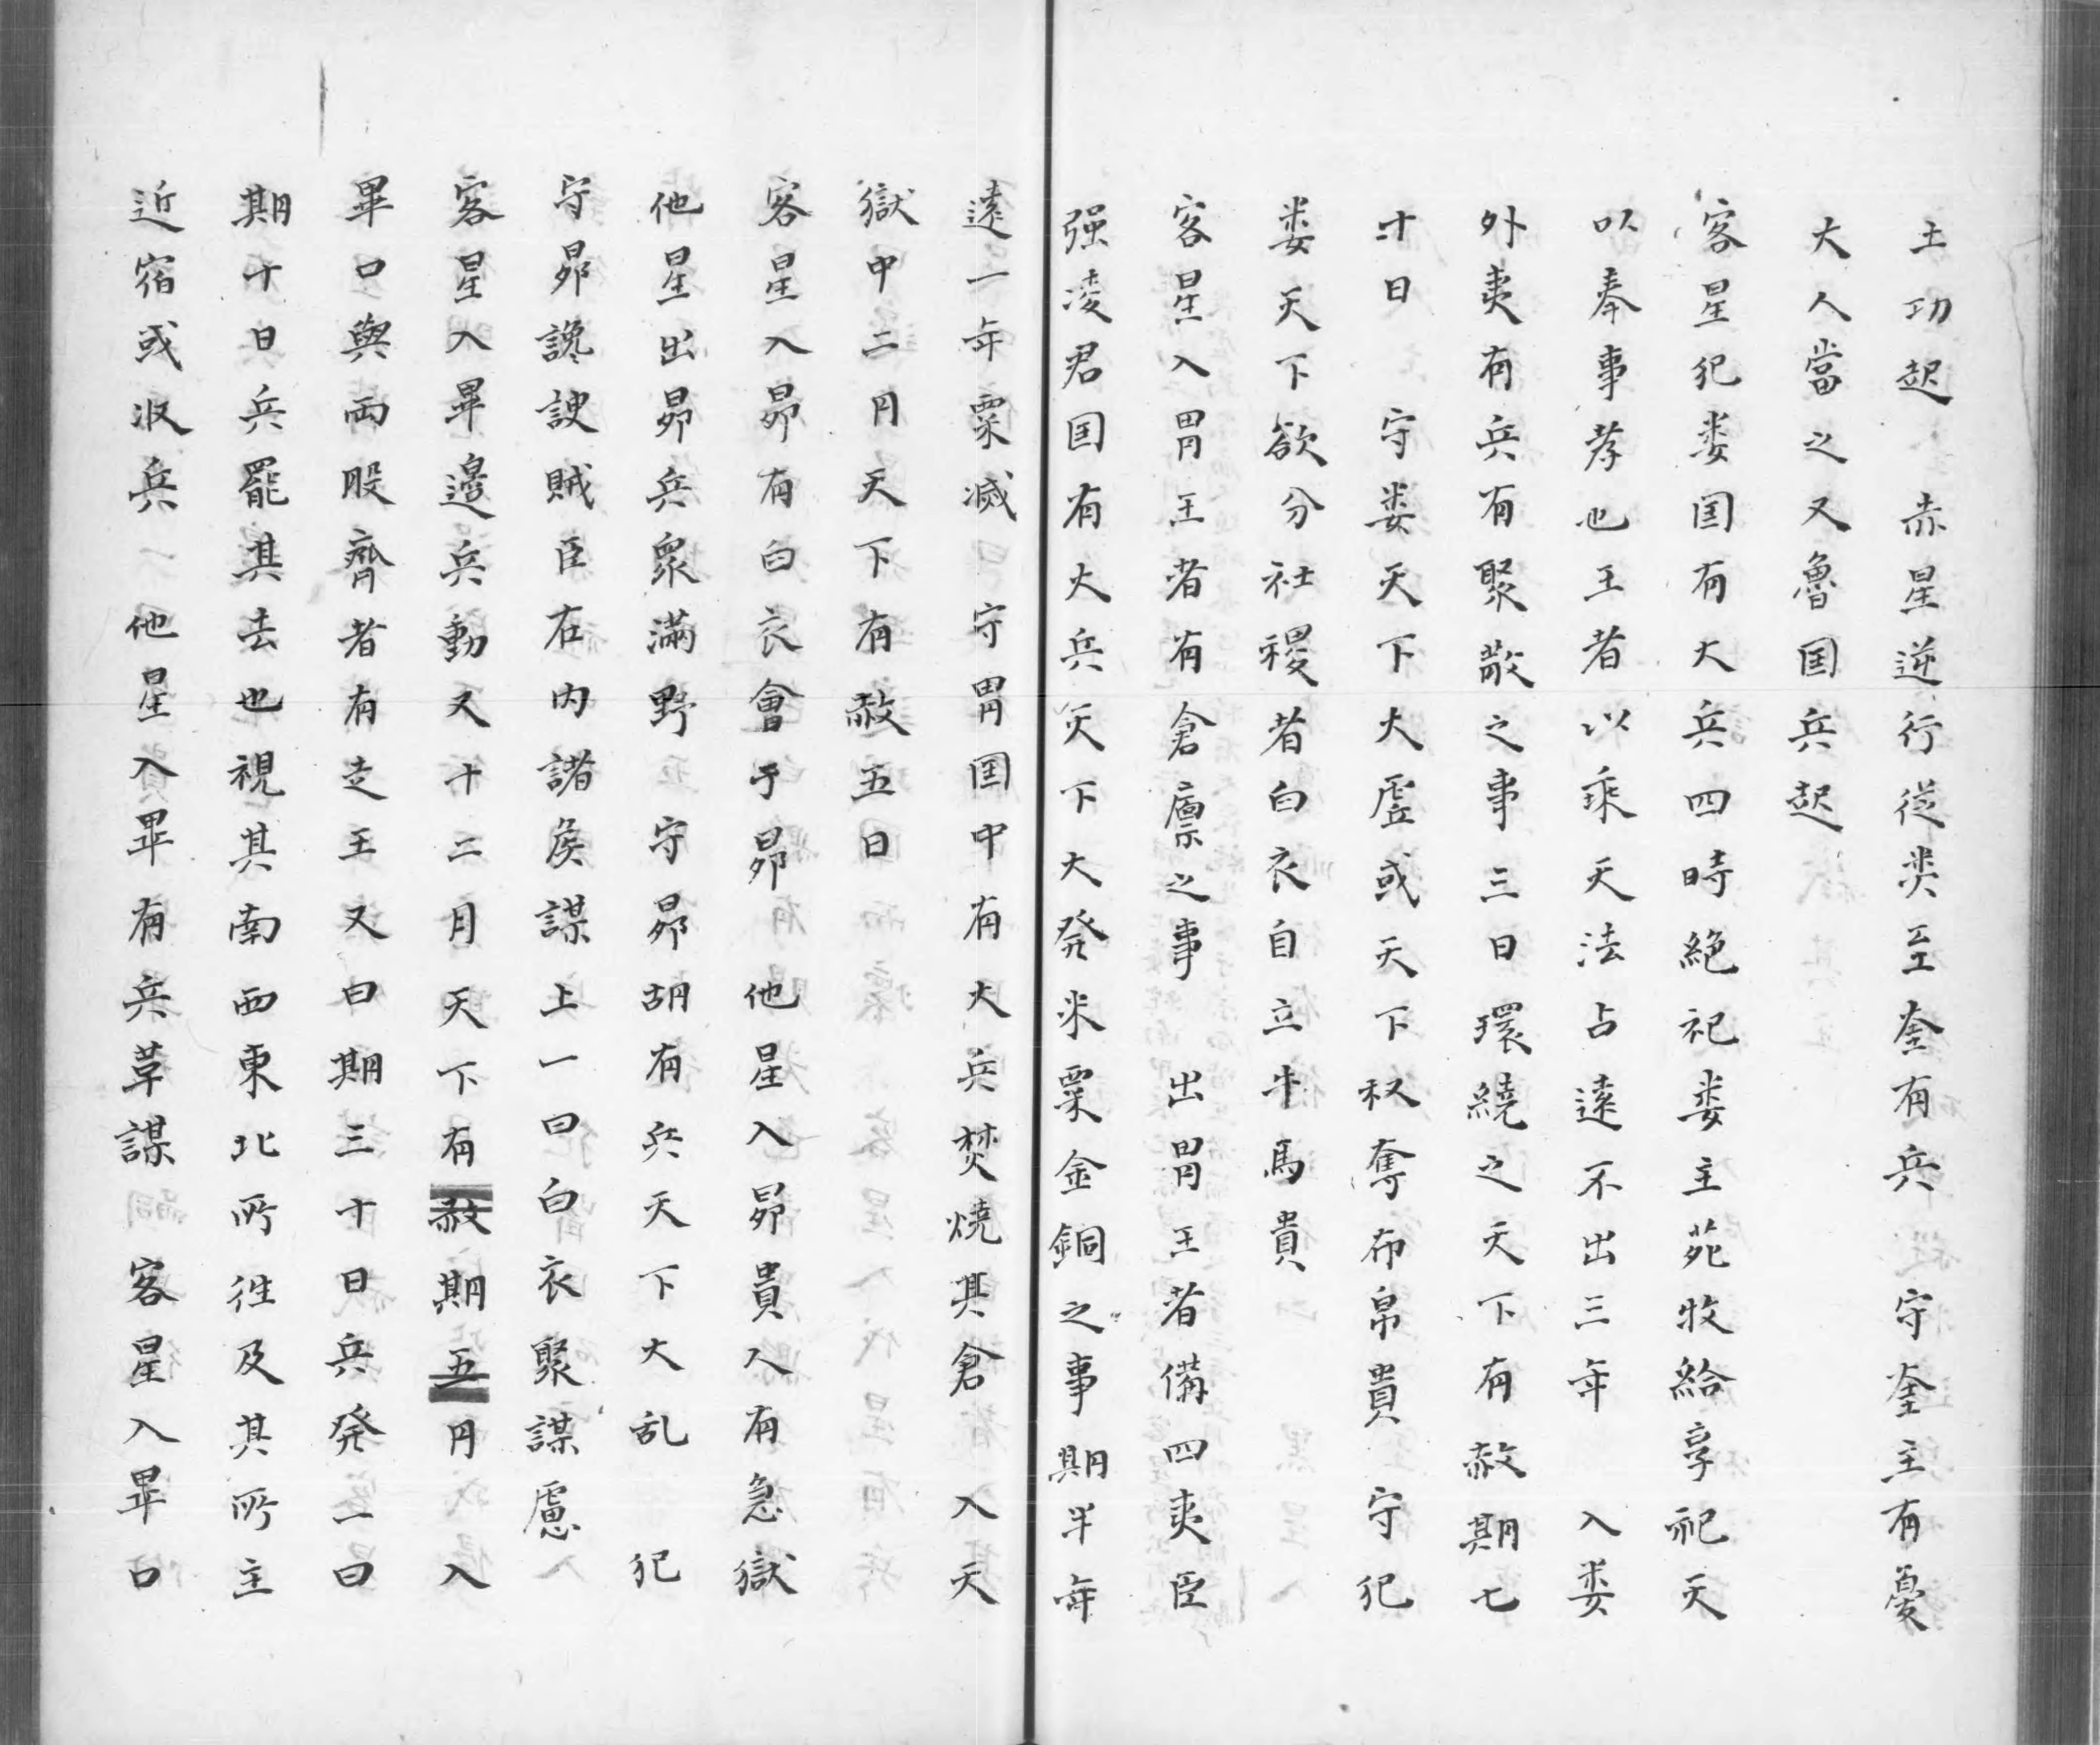 土功起　赤星逆行従娄至奎有兵　守奎主有憂
大人當之又魯国兵起
客星犯娄国有大兵四時絶祀娄主苑牧給享祀天
以奉事孝也王者以乘天法占遠不出三年　入娄
外夷有兵有聚散之事三日環繞之天下有赦期七
十日　守娄天下大虚或天下奴奪布帛貴　守犯
娄天下欲分社稷者白衣自立牛馬貴
客星入胃王者有倉廪之事　出胃王者備四夷臣
强凌君国有大兵天下大発米粟金銅之事期半年
遠一年粟減　守胃国中有大兵焚燒其倉　入天
獄中二円天下有赦五日
客星入昴有白衣會于昴　他星入昴貴人有急獄
他星出昴兵衆滿野　守昴胡有兵天下大乱　犯
守昴讒諛賊臣在内諸侯謀上一曰白衣聚謀慮
客星入畢邊兵動又十二月天下有赦期五円入
畢口與両股齊者有走王又曰期三十日兵発一曰
期十日兵罷其去也視其南西東北所往及其所主
近宿或收兵　他星入畢有兵革謀　客星入畢口